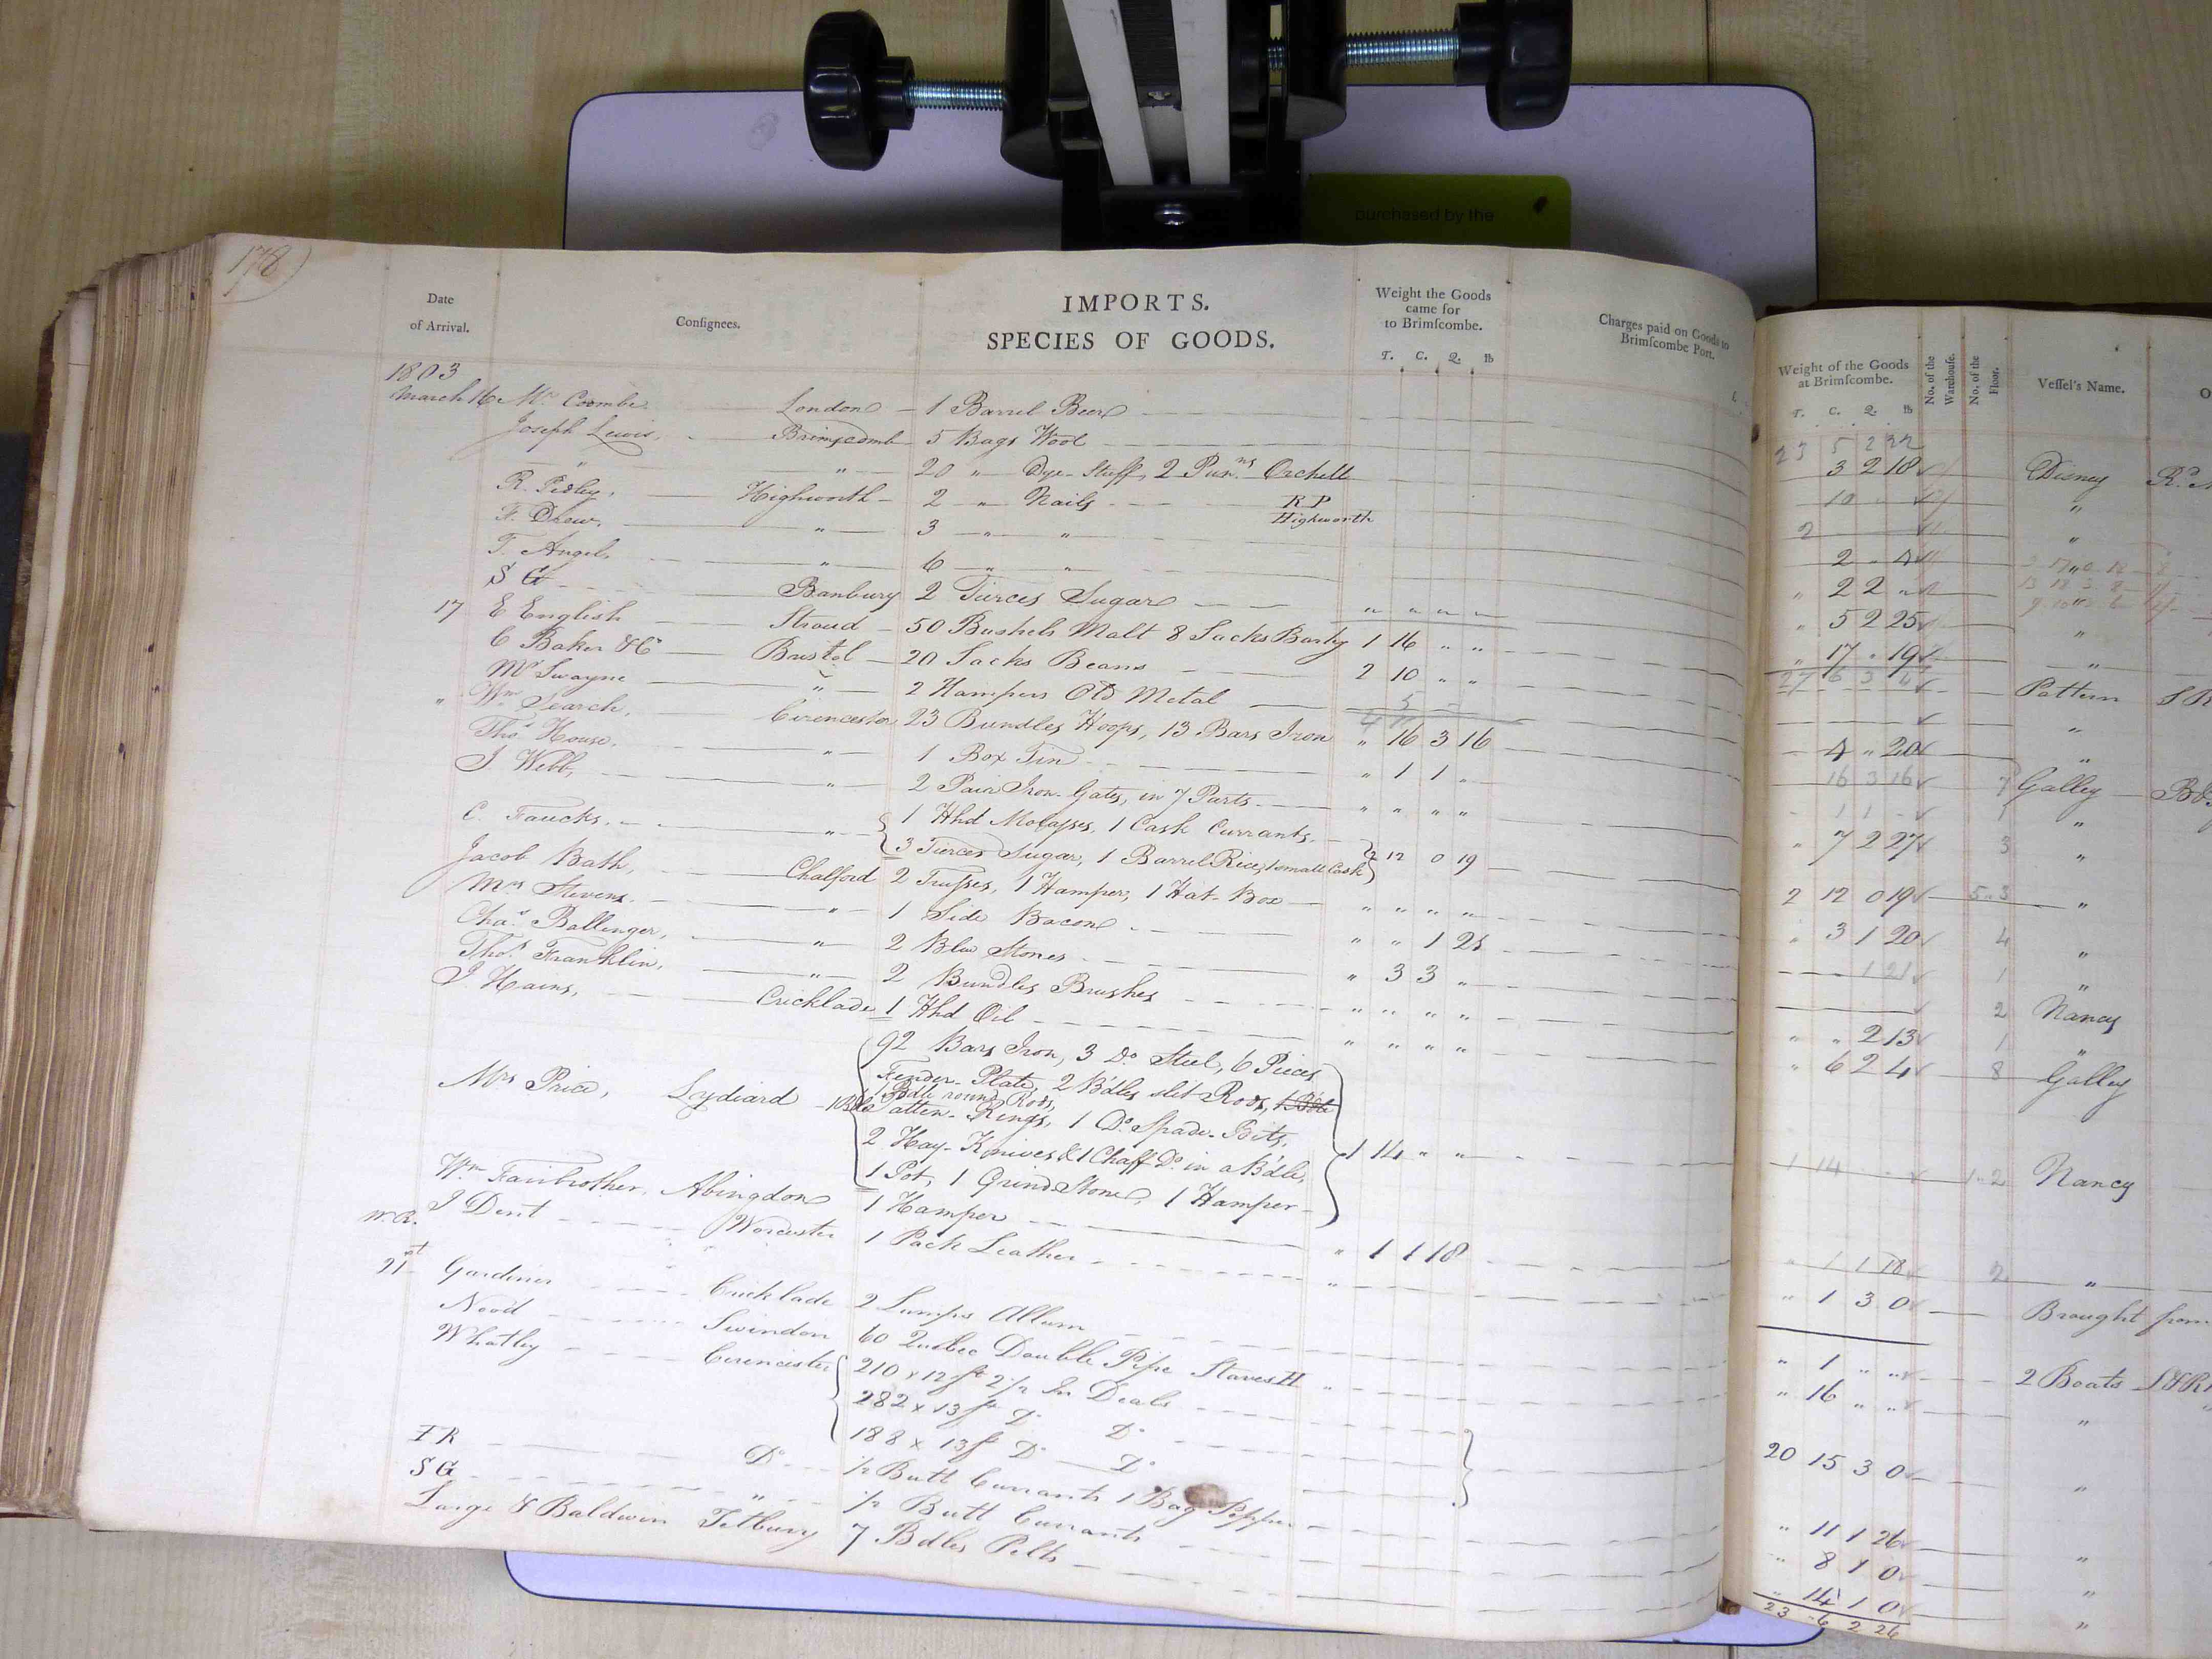 purchased by the
178
Date of Arrival.
Consignees.
IMPORTS.
SPECIES OF GOODS.
Weight the Goods came for to Brimscombe.
T. C. Q. lb
Charges paid on Goods to Brimscombe Port.
Weight of the Goods at Brimscombe.
T. C. Q. lb
No. of the Warehouse.
No. of the Floor.
Vessel's Name.
1803
March 16 Mr. Coombe London 1 Barrel Beer 3 2 18 Disney
Joseph Lewis, Brimscomb 5 Bags Wool 10 "
" " 20 " Dye-Stuff, 2 Puns. Orchell 2 "
R. Pidley, Highworth 2 " Nails RP Highworth 2 " 4 "
F. Drew, " 3 " " " 2 2 "
T. Angel, " 6 " " " 5 2 25 "
S G Banbury 2 Tierces Sugar " " " " " 17 " 19 "
17 E English Stroud 50 Bushels Malt 8 Sacks Barley 1 16 " " Pattern
C Baker & Co Bristol 20 Sacks Beans 2 10 " " "
Mr Swayne " 2 Hampers Old Metal 5 4 " 20 "
" Wm Search, Cirencester 23 Bundles Hoops, 13 Bars Iron " 16 3 16 16 3 16 7 Galley
Thos. House, " 1 Box Tin " 1 1 " 1 1 " 1 "
J Webb, " 2 Pair Iron-Gates, in 7 Parts " " " " " 7 2 27 3 "
C. Faucks, " 1 Hhd Molasses, 1 Cask Currants
3 Tierces Sugar, 1 Barrel Rice, 1 small Cask 2 12 0 19 2 12 0 19 5.3 "
Jacob Bath, Chalford 2 Trusses, 1 Hamper, 1 Hat-Box " " " " " 3 1 20 4 "
Mrs Stevens " 1 Side Bacon " " 1 21 1 21 1 "
Chas. Ballenger, " 2 Blue Stones " 3 3 " 2 Nancy
Thos. Franklin, " 2 Bundles Brushes " " " " " " 2 13 1 "
J. Hains, Cricklade 1 Hhd Oil " " " " " 6 2 4 8 Galley
92 Bars Iron, 3 Do Steel, 6 Pieces
Fender-Plate, 2 Bdles slit Rods, 1 Bdle
1 Bdle round Rods,
Mrs Price, Lydiard 1 Bdle Patten-Rings, 1 Do Spade-Bits,
2 Hay-Knives & 1 Chaff Do in a Bdle, 1 14 " " 1 14 1.2 Nancy
1 Pot, 1 Grind Stone, 1 Hamper
Wm Fairbrother, Abingdon 1 Hamper " 1 1 18 " 1 1 18 2 "
J Dent Worcester 1 Pack Leather " " 1 3 0 Brought from
21st Gardiner Cricklade 2 Lumps Allum " 1 " " 2 Boats
Nood Swindon 60 Quebec Double Pipe Staves H " " 16 " " "
Whatley Cirencester 210 x 12 ft 2 1/2 In Deals
282 x 13 ft Do Do
188 x 13 ft Do Do 20 15 3 0 "
IR Do 1/2 Butt Currants 1 Bag Pepper " 11 1 26 "
SG " 1/2 Butt Currants " 8 1 0 "
Large & Baldwin Tetbury 7 Bdles Pelts " 14 1 0 "
23 6 2 26